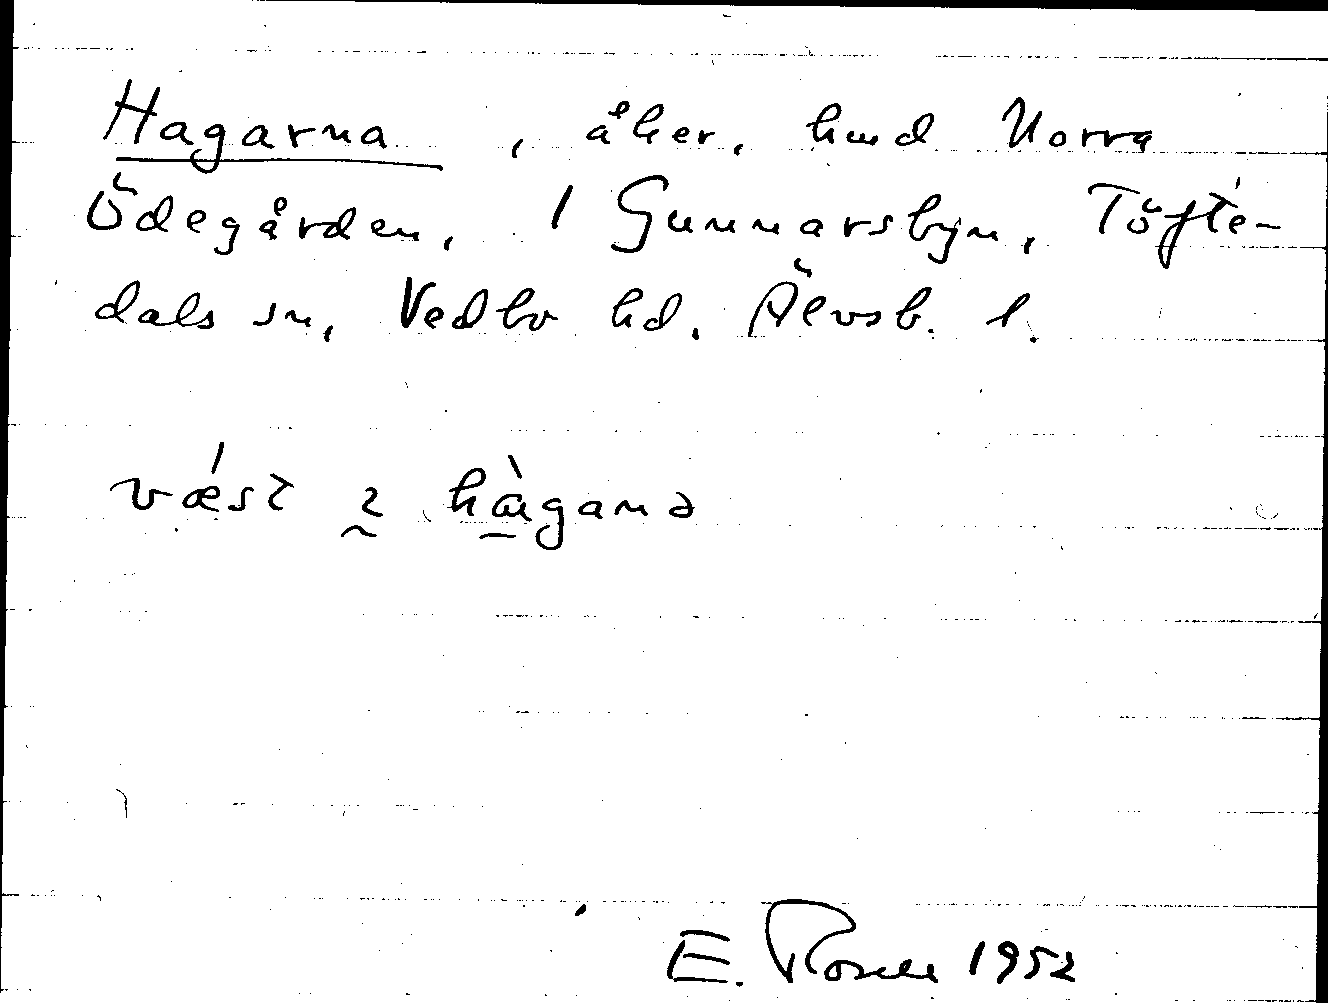 Hagarna, åker, hmd Norra
Ödegården, 1 Gunnarsbyn, Töfte-
dals sn, Vedbo hd. Älvsb. l.
vǽst ḭ hà̱gana
E. Rosell 1952